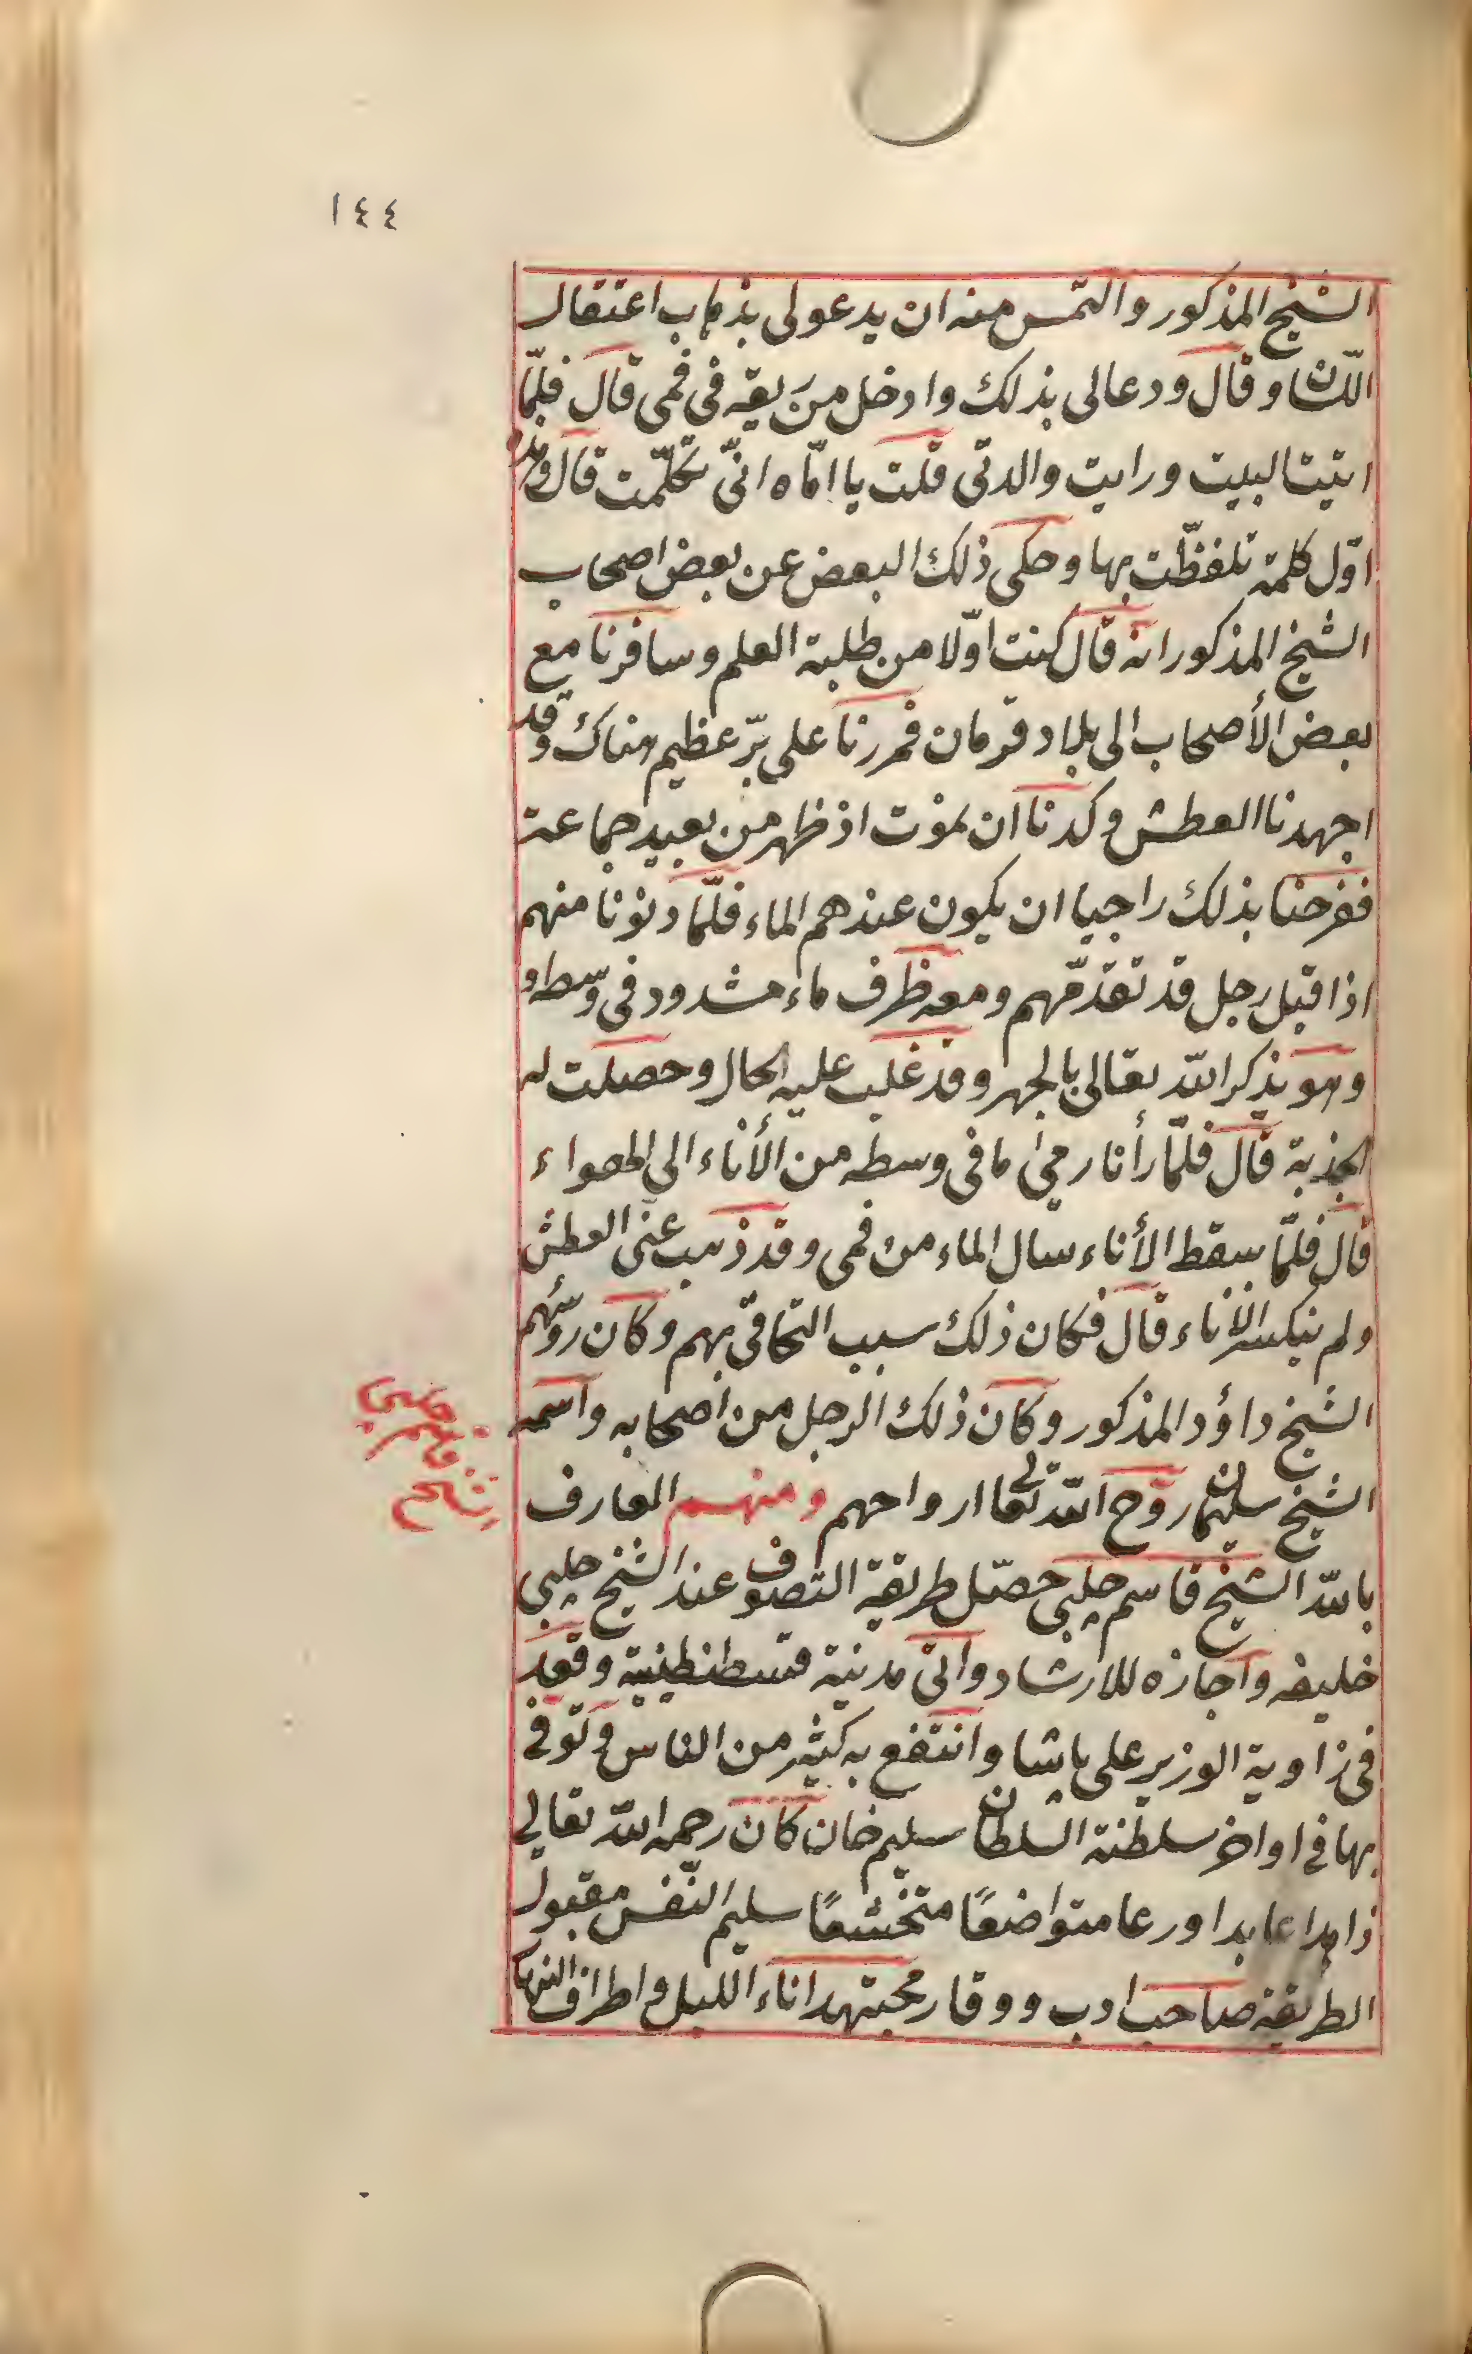 ١٤٤
الشيخ المذكور والتمس منه ان يدعو لى بذهاب اعتقال
اللسان وقال ودعا لى بذلك وادخل من ريقه فى فمى قال فلمّا
اتيت البيت ورايت والدتى قلت يا امّاه انّى تكلّمت قال وهذه
اوّل كلمة تلفظّت بها وحكى ذلك البعض عن بعض اصحاب
الشيخ المذكور انه قال كنت اوّلا من طلبة العلم وسافرنا مع
بعض الأصحاب الى بلاد قرمان فمررنا على برّ عظيم هناك وقد
اجهدنا العطش وكدنا ان نموت اذ ظهر من بعيد جماعة
ففرحنا بذلك راجيا ان يكون عندهم الماء فلمّا دنونا منهم
اذا قبل رجل قد تقدّمهم ومعه ظرف ماء مشدود فى وسطه و
وهو يذكر الله تعالى بالجهر وقد غلب عليه الحال وحصلت له
الجذبة قال فلمّا رأنا رمى ما فى وسطه من الأناء الى الهواء
قال فلمّا سقط الأناء سال الماء من فمى وقد ذهب عنّى العطش
ولم ينكسر الأناء قال فكان ذلك سبب التحاقى بهم وكان رئيسهم
الشيخ داؤد المذكور وكان ذلك الرجل من اصحابه واسمه
الشيخ سليمان روّح الله تعالى ارواحهم ومنهم العارف
بالله الشيخ قاسم چلبى حصّل طريقة التصوف عند الشيخ چلبى
خليفه واجازه للارشاد واتى مدينة قسطنطينية وقعد
فى زاوية الوزير على پاشا وانتفع به كثير من الناس وتوفى
بها فى اواخر سلطنة السلطان سليم خان كان رحمه الله تعالى
زاهدا عابدا ورعا متواضعًا متخشعًا سليم النّفس مقبول
الطريقة صاحب ادب ووقار مجتهدا اناء الليل واطراف النهار
شيخ
قاسم
چلبى